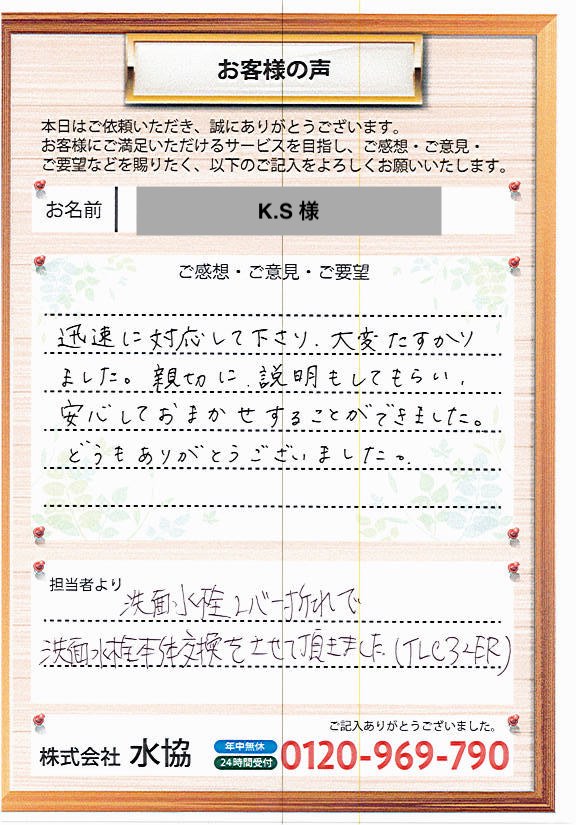 お客様の声
本日はご依頼いただき、誠にありがとうございます。
お客様にご満足いただけるサービスを目指し、ご感想・ご意見・
ご要望などを賜りたく、以下のご記入をよろしくお願いいたします。
お名前 K.S 様
ご感想・ご意見・ご要望
迅速に対応して下さり、大変たすかり
ました。親切に、説明もしてもらい、
安心しておまかせすることができました。
どうもありがとうございました。
担当者より 洗面水栓レバー折れで
洗面水栓本体交換をさせて頂きました。(TLC32ER)
ご記入ありがとうございました。
株式会社 水協 年中無休 24時間受付 0120-969-790